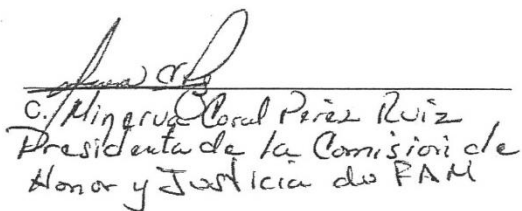 C. Minerva Coral Pérez Ruiz
Presidenta de la Comisión de
Honor y Justicia de FAM